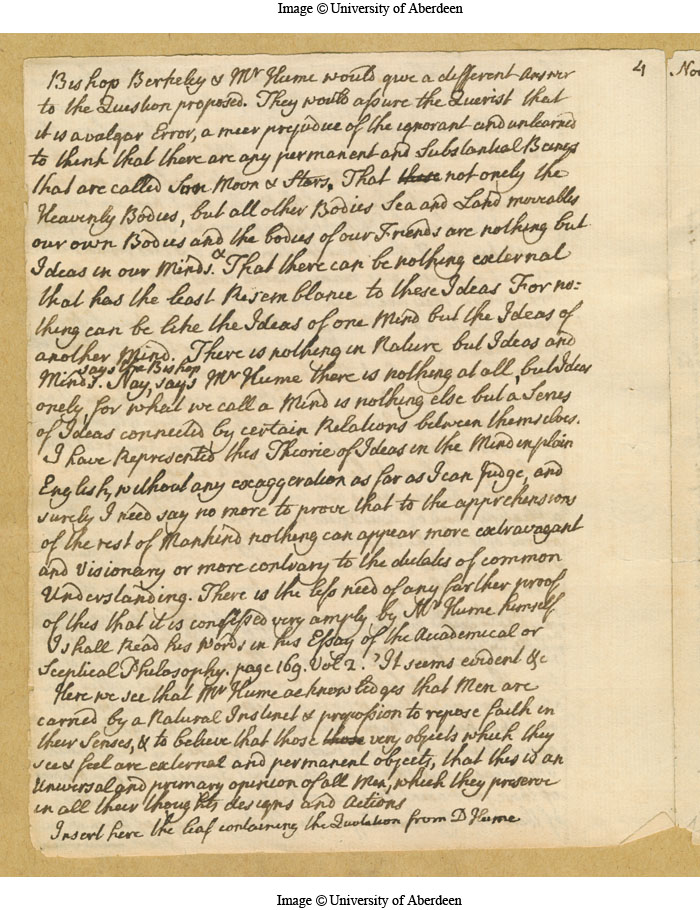 Image © University of Aberdeen
4
Nor
Bishop Berkeley & Mr Hume would give a different Answer
to the Question proposed. They would assure the Querist that
it is a vulgar Error, a meer prejudice of the ignorant and unlearned
to think that there are any permanent and Substantial Beings
that are called Sun Moon & Stars. That these not onely the
Heavenly Bodies, but all other Bodies Sea and Land moveables
our own Bodies and the bodies of our Friends are nothing but
Ideas in our Minds. That there can be nothing external
that has the least Resemblance to these Ideas For no=
thing can be like the Ideas of one Mind but the Ideas of
another Mind. There is nothing in Nature but Ideas and
says the Bishop
Minds. Nay, says Mr Hume there is nothing at all, but Ideas
onely, for what we call a Mind is nothing else but a Series
of Ideas connected by certain Relations between themselves.
I have Represented this Theorie of Ideas in the Mind in plain
English, without any exaggeration as far as I can Judge, and
surely I need say no more to prove that to the apprehensions
of the rest of Mankind nothing can appear more extravagant
and Visionary or more contrary to the dictates of common
Understanding. There is the less need of any farther proof
of this that it is confessed very amply by Mr Hume himself
I shall Read his words in his Essay of the Academical or
Sceptical Philosophy. page 169. Vol 2. It seems evident &c
Here we see that Mr Hume acknowledges that Men are
carried by a Natural Instinct & prepossion to repose faith in
their Senses, & to believe that those those very objects which they
see & feel are external and permanent objects, that this is an
Universal and primary opinion of all Men, which they preserve
in all their thoughts designs and Actions
Insert here the leaf containing the Quotation from D Hume
Image © University of Aberdeen